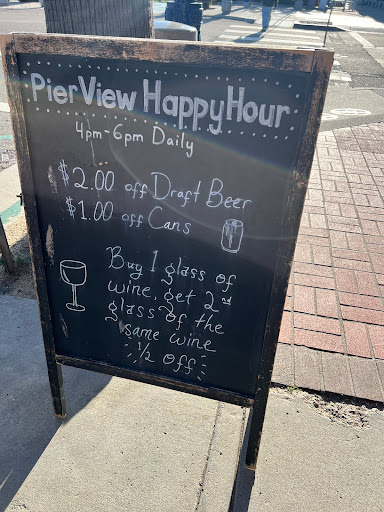 PierView HappyHour
4pm-6pm Daily
$2.00 off Draft Beer
$1.00 off Cans
Buy 1 glass of
wine, get 2nd
glass of the
same wine
1/2 off